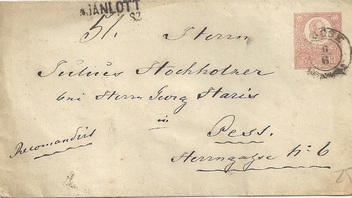 AJÁNLOTT
SZ
Herrn
Julius Stockholzer
bei Herrn Georg
in
Pess.
Recomandirt
Herrngasse No 6